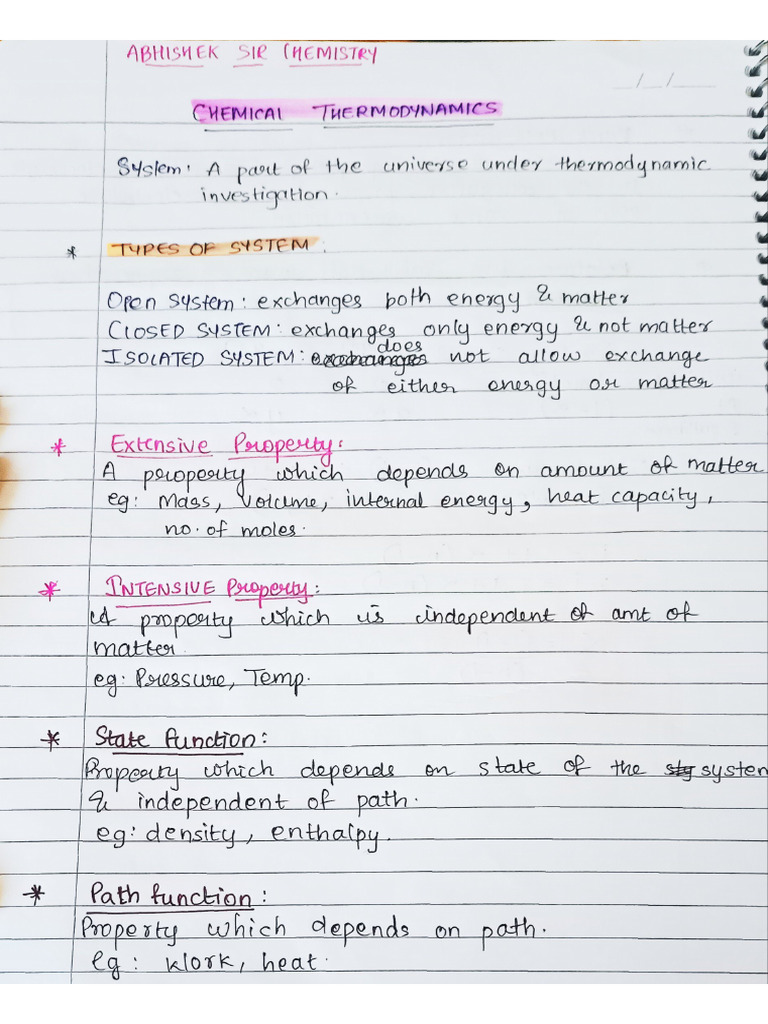 ABHISHEK SIR CHEMISTRY
__/__/____
CHEMICAL THERMODYNAMICS
System: A part of the universe under thermodynamic
investigation.
* TYPES OF SYSTEM:
Open System: exchanges both energy & matter
CLOSED SYSTEM: exchanges only energy & not matter
ISOLATED SYSTEM: does not allow exchange
of either energy or matter
* Extensive Property:
A property which depends on amount of matter
eg: Mass, Volume, internal energy, heat capacity,
no. of moles.
* INTENSIVE Property:
A property which is independent of amt of
matter.
eg: Pressure, Temp.
* State function:
Property which depends on state of the system
& independent of path.
eg: density, enthalpy.
* Path function:
Property which depends on path.
eg: Work, heat.